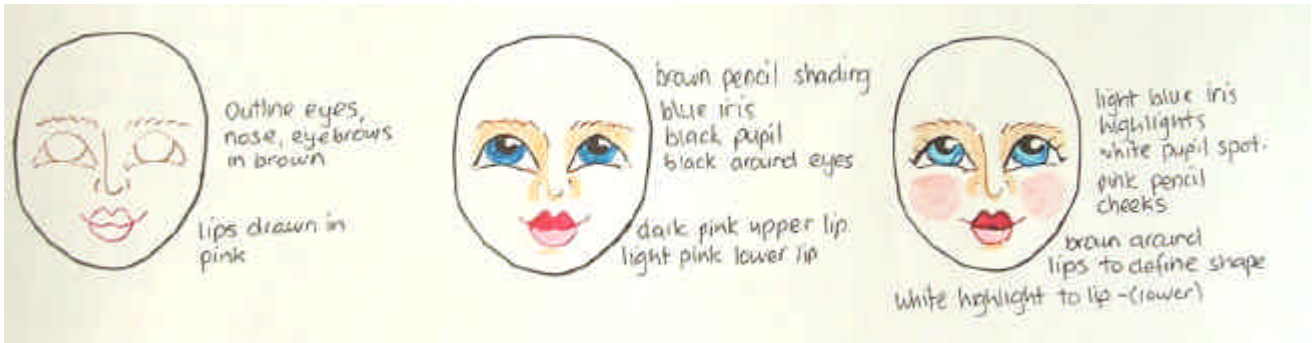 Outline eyes,
nose, eyebrows
in brown
lips drawn in
pink
brown pencil shading
blue iris
black pupil
black around eyes
dark pink upper lip
light pink lower lip
light blue iris
highlights
white pupil spot.
pink pencil
cheeks
brown around
lips to define shape
white highlight to lip-(lower)